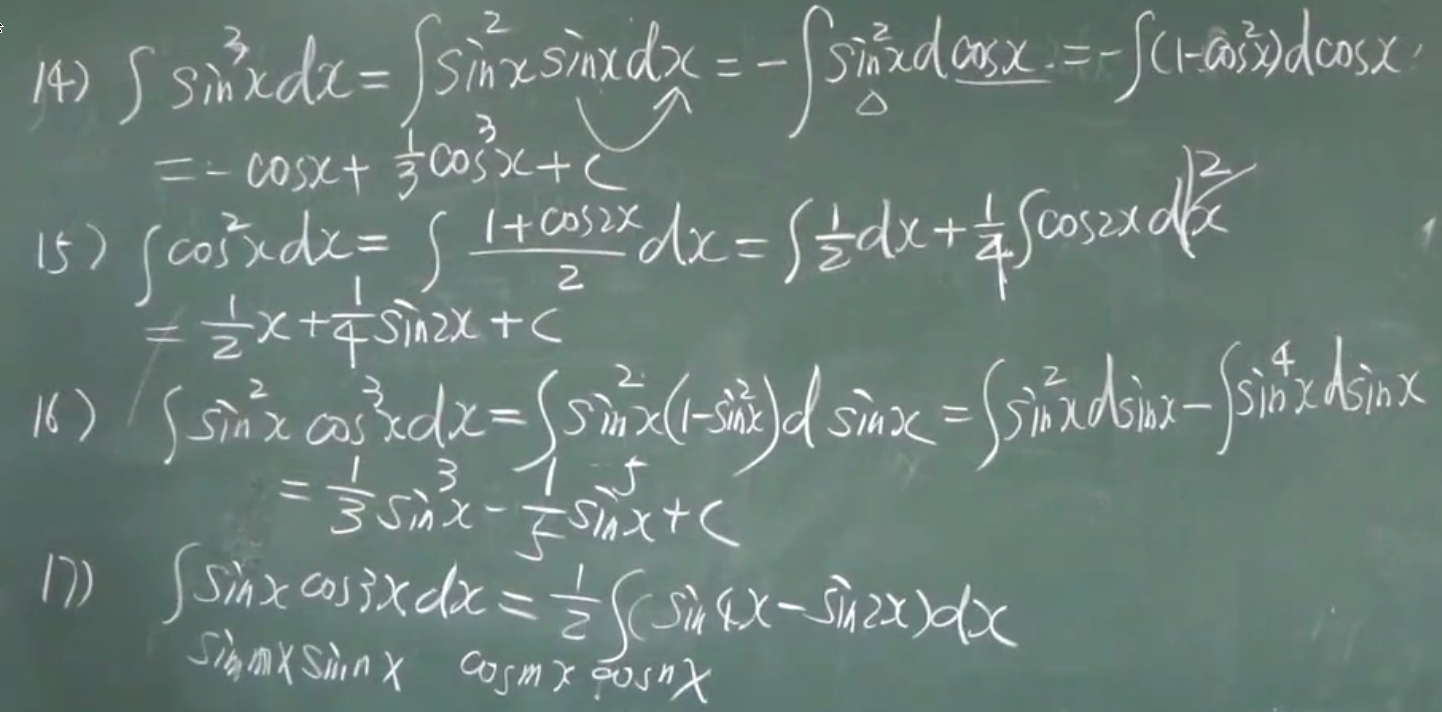 14) ∫ sin³x dx = ∫ sin²x sinx dx = -∫ sin²x d cosx = -∫(1-cos²x)dcosx
= -cosx + 1/3 cos³x + C
15) ∫ cos²x dx = ∫ (1+cos2x)/2 dx = ∫ 1/2 dx + 1/4 ∫ cos2x d2x
= 1/2 x + 1/4 sin2x + C
16) ∫ sin²x cos³x dx = ∫ sin²x(1-sin²x)d sinx = ∫ sin²x dsinx - ∫ sin⁴x dsinx
= 1/3 sin³x - 1/5 sin⁵x + C
17) ∫ sinx cos3x dx = 1/2 ∫( sin4x - sin2x)dx
sinmx sinnx cosmx cosnx